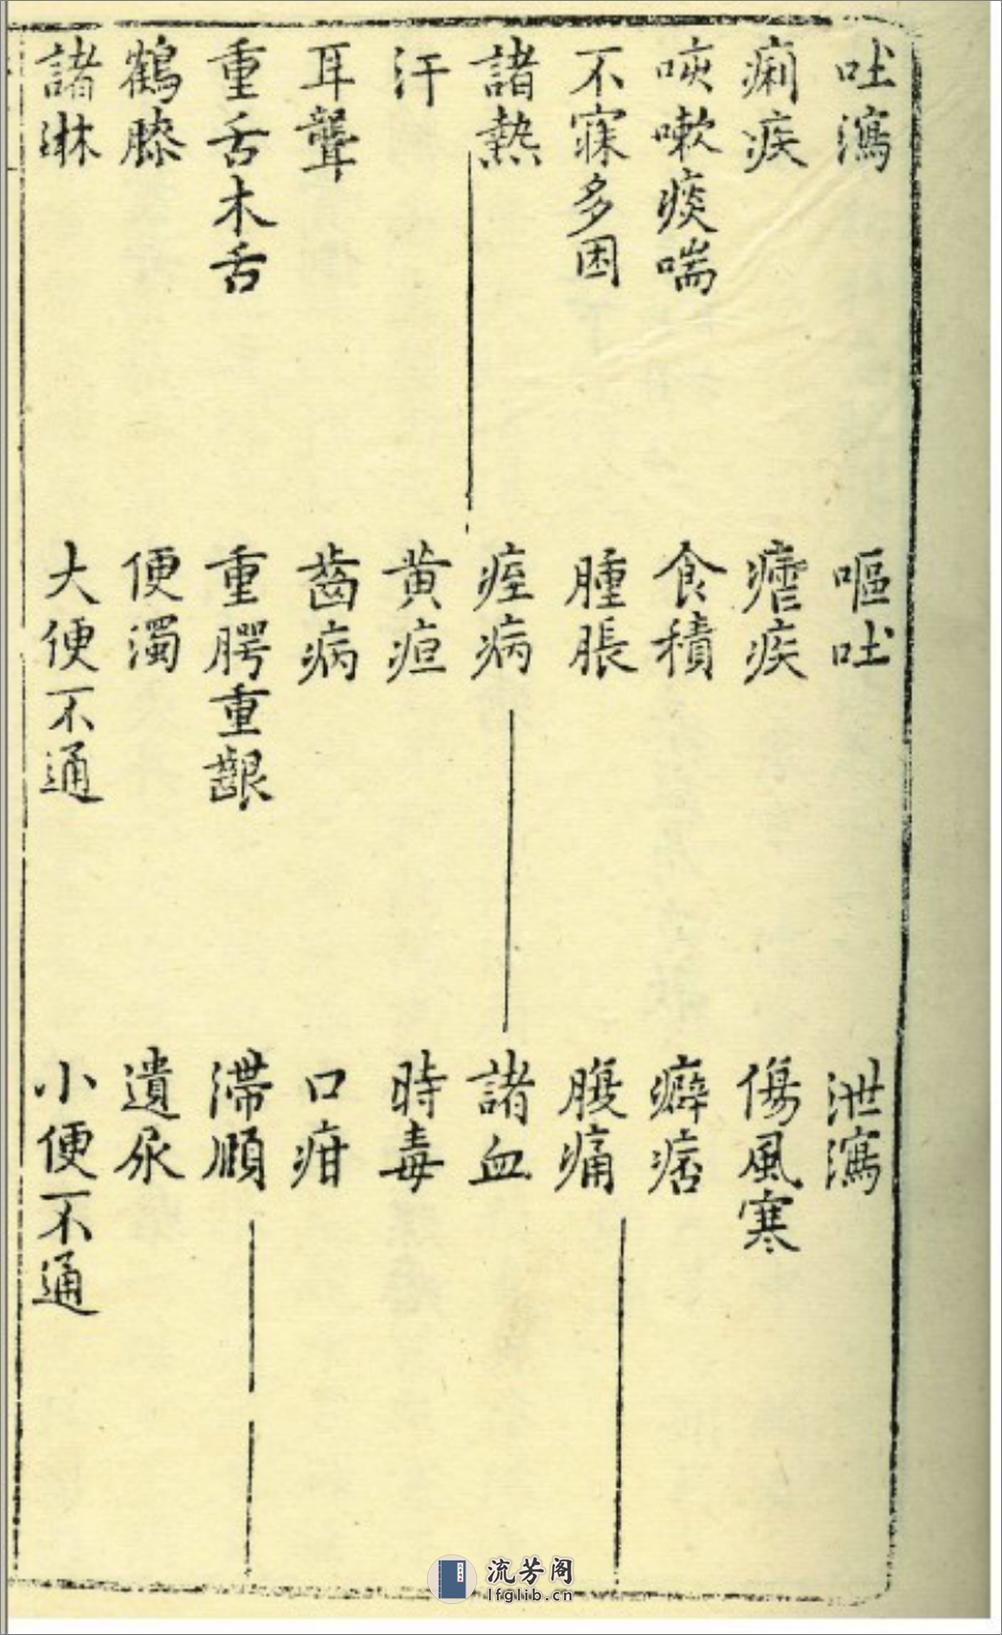 吐瀉　嘔吐　泄瀉
痢疾　瘧疾　傷風寒
咳嗽痰喘　食積　癖痞
不寐多困　腫脹　腹痛
諸熱　痙病　諸血
汗　黄疸　時毒
耳聾　齒病　口疳
重舌木舌　重腭重齦　滯頤
鶴膝　便濁　遺尿
諸淋　大便不通　小便不通
流芳阁
lfglib.cn